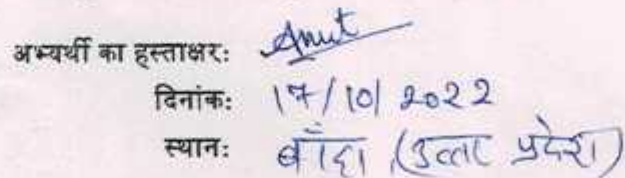 अभ्यर्थी का हस्ताक्षर: Amit
दिनांक: 17/10/2022
स्थान: बाँदा (उत्तर प्रदेश)